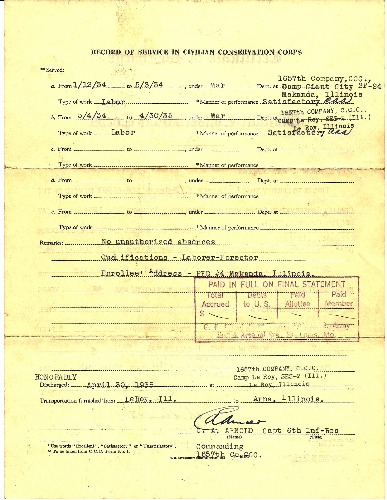 RECORD OF SERVICE IN CIVILIAN CONSERVATION CORPS
**Served:
1657 Company, CCC.,
a. From 1/12/34 to 5/3/34, under War Dept. at Camp Giant City SP-24
Makanda, Illinois
Type of work Labor *Manner of performance Satisfactory
1657 COMPANY, C.C.C.
b. From 5/4/34 to 4/30/35, under War Dept. at Camp Le Roy, SES-2 (Ill.)
Le Roy, Illinois
Type of work Labor *Manner of performance Satisfactory
c. From to , under Dept. at
Type of work *Manner of performance
d. From to , under Dept. at
Type of work *Manner of performance
e. From to , under Dept. at
Type of work *Manner of performance
Remarks: No unauthorized absences
Qualifications - Laborer-
Enrollee' Address - RFD Makanda, Illinois.
PAID IN FULL ON FINAL STATEMENT
Total Accrued
Due to U. S.
Paid Allottee
Paid Member
$
1657th COMPANY, C.C.C.
HONORABLY Camp Le Roy, SES-2 (Ill.)
Discharged: April 30, 1935 at Le Roy, Illinois
Transportation furnished from LeRoy, Ill. to Anna, Illinois.
ARNOLD Capt 6th Inf-Res
(Name) (Title)
*Use words "Excellent", "Satisfactory", or "Unsatisfactory".
Commanding
**To be taken from C.C.C. Form No. 1.
1657th Co. CCC.